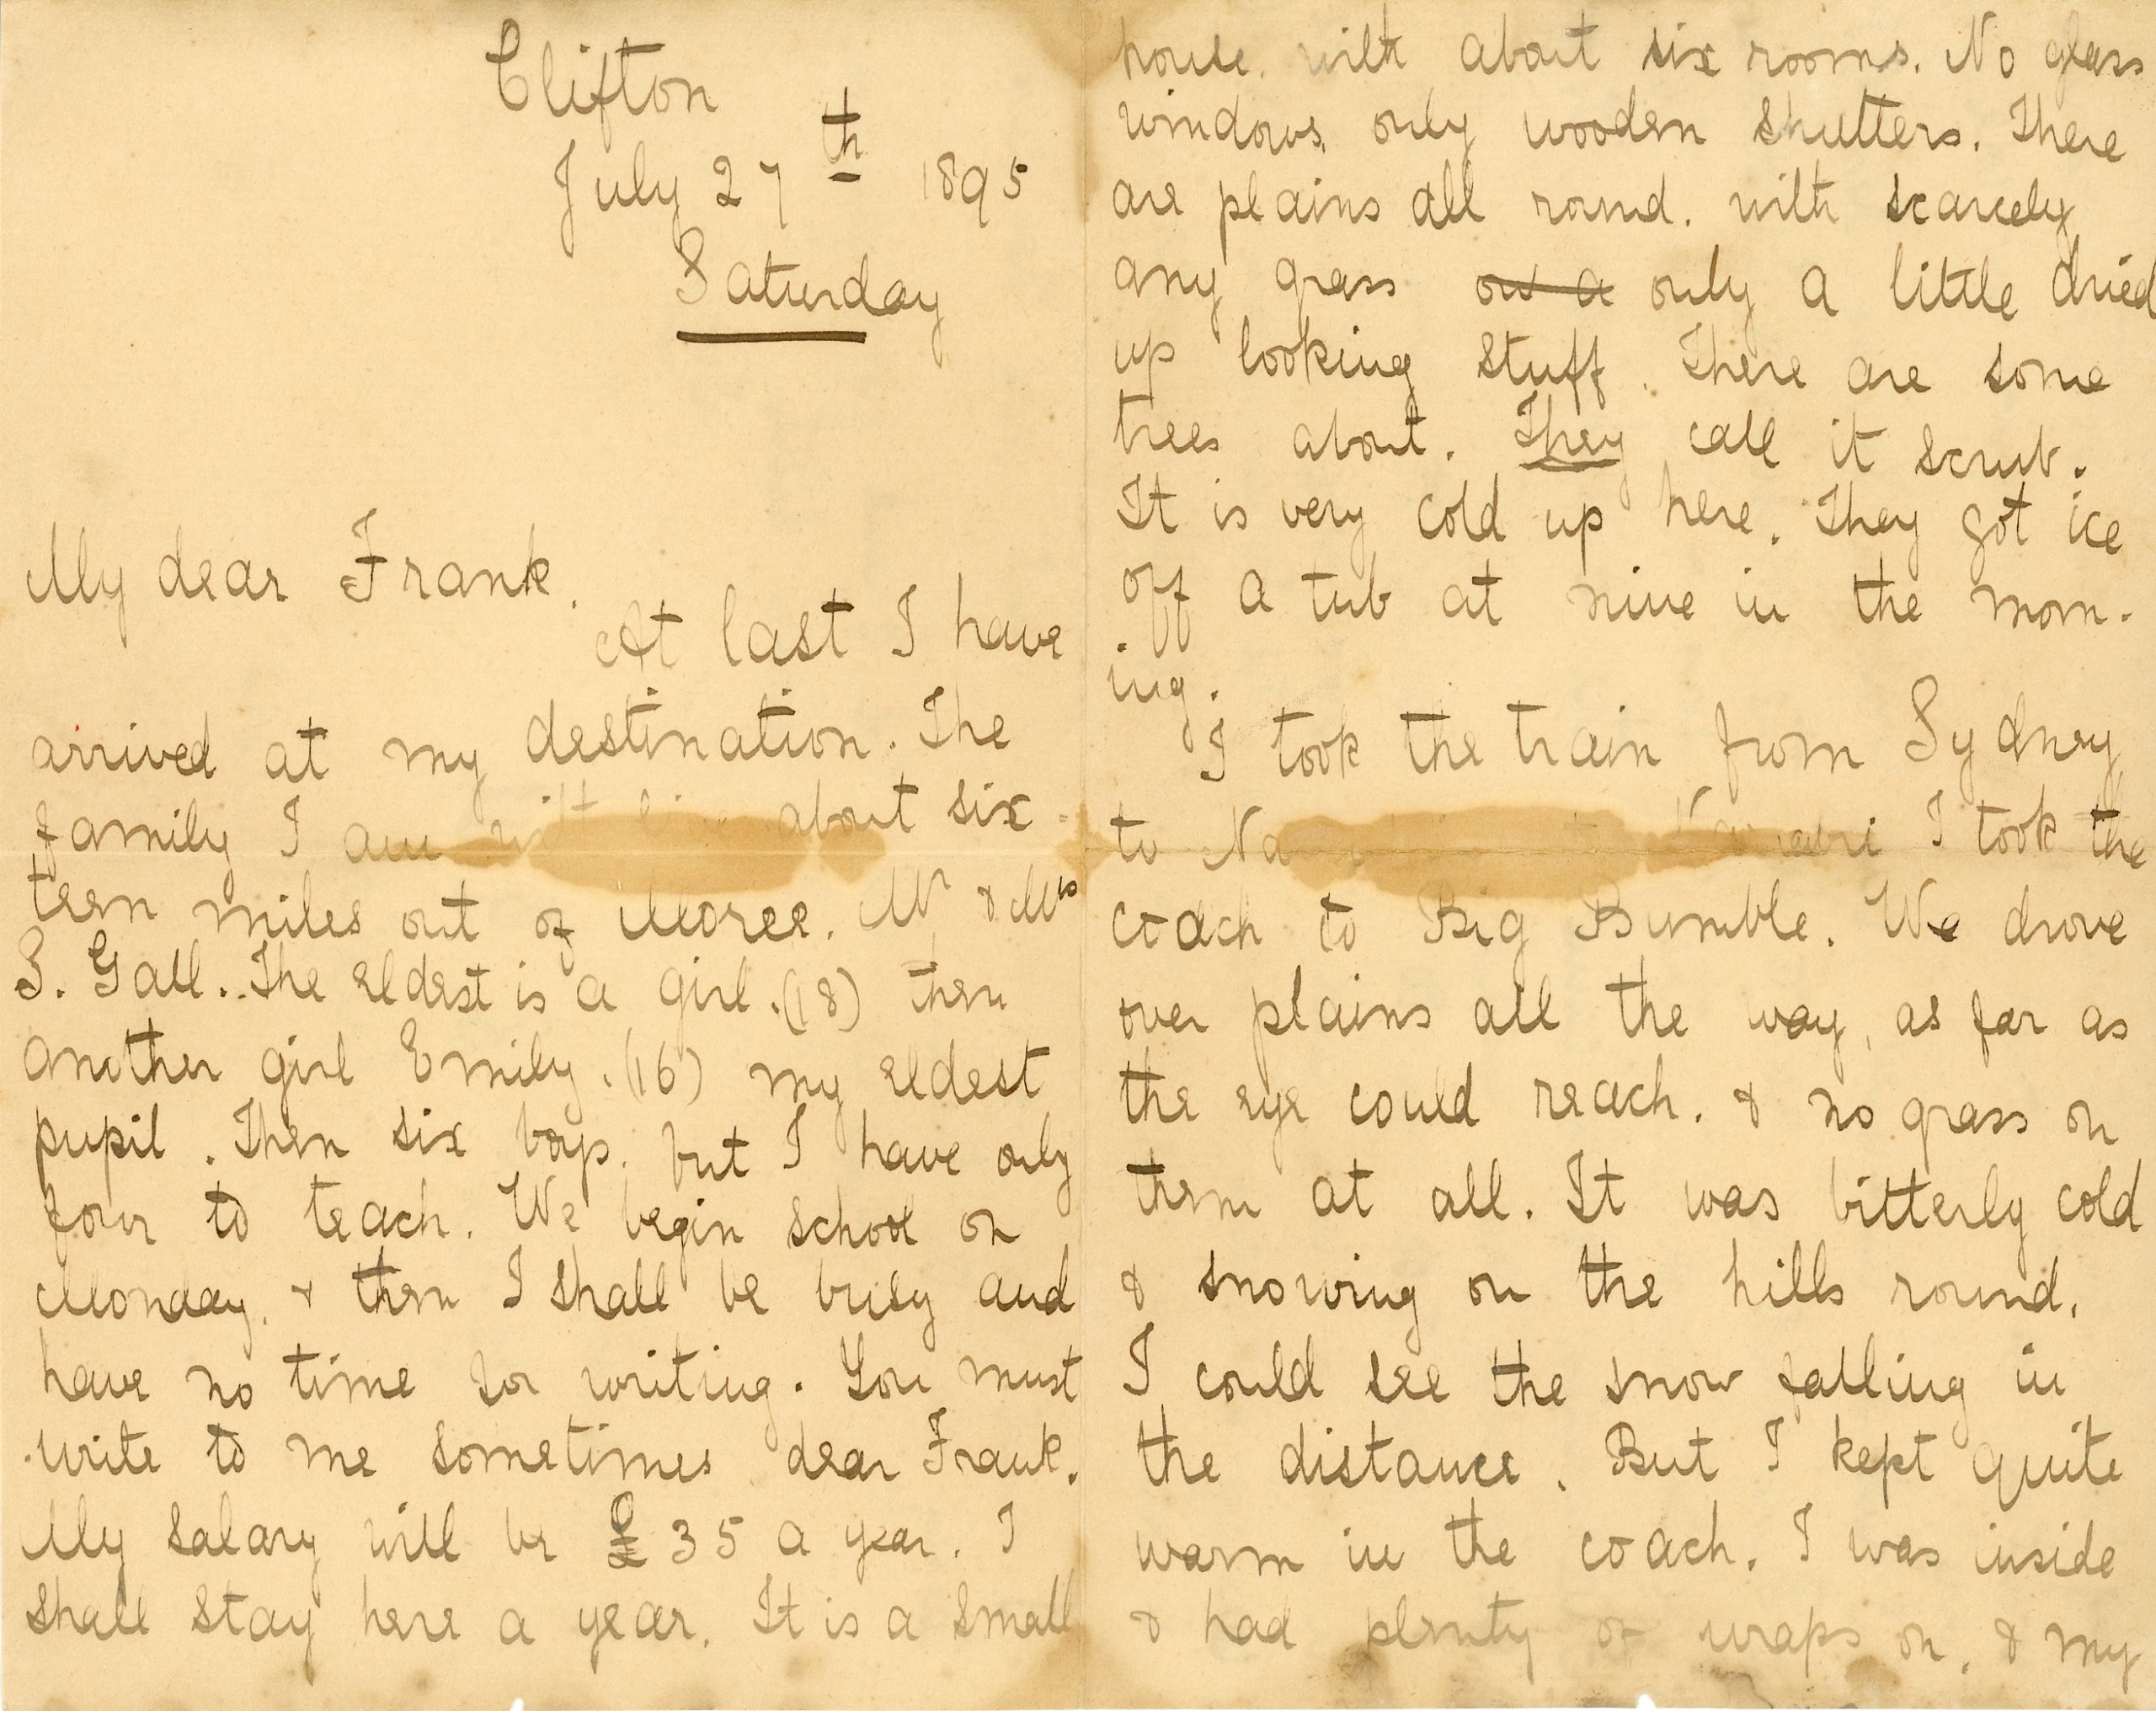 Clifton
July 27th 1895
Saturday
My dear Frank.
At last I have
arrived at my destination. The
family I am with live about six
teen miles out of Moree. Mr & Mrs
S. Gall. The eldest is a girl. (18) then
another girl Emily. (16) my eldest
pupil. Then six boys. but I have only
four to teach. We begin school on
Monday. & then I shall be busy and
have no time for writing. You must
write to me sometimes dear Frank.
My salary will be £35 a year. I
shall stay here a year. It is a small
house. with about six rooms. No glass
windows, only wooden shutters. There
are plains all round. with scarcely
any grass only a little dried
up looking stuff. There are some
trees about. They call it scrub.
It is very cold up here. They got ice
off a tub at nine in the morn-
ing.
I took the train from Sydney
to I took the
coach to Big Bumble. We drove
over plains all the way, as far as
the eye could reach. & no grass on
them at all. It was bitterly cold
& snowing on the hills round.
I could see the snow falling in
the distance. But I kept quite
warm in the coach. I was inside
& had plenty of wraps on. & my